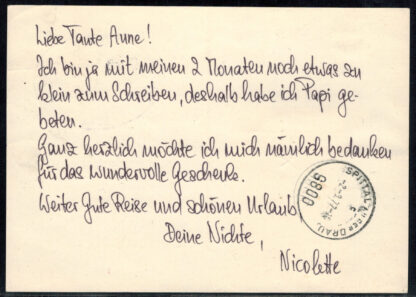 Liebe Tante Anne!
Ich bin ja mit meinen 2 Monaten noch etwas zu
klein zum Schreiben, deshalb habe ich Papi ge-
beten.
Ganz herzlich möchte ich mich nämlich bedanken
für das wundervolle Geschenk.
Weiter gute Reise und schönen Urlaub
Deine Nichte,
Nicolette
SPITTAL AN DER DRAU
9800